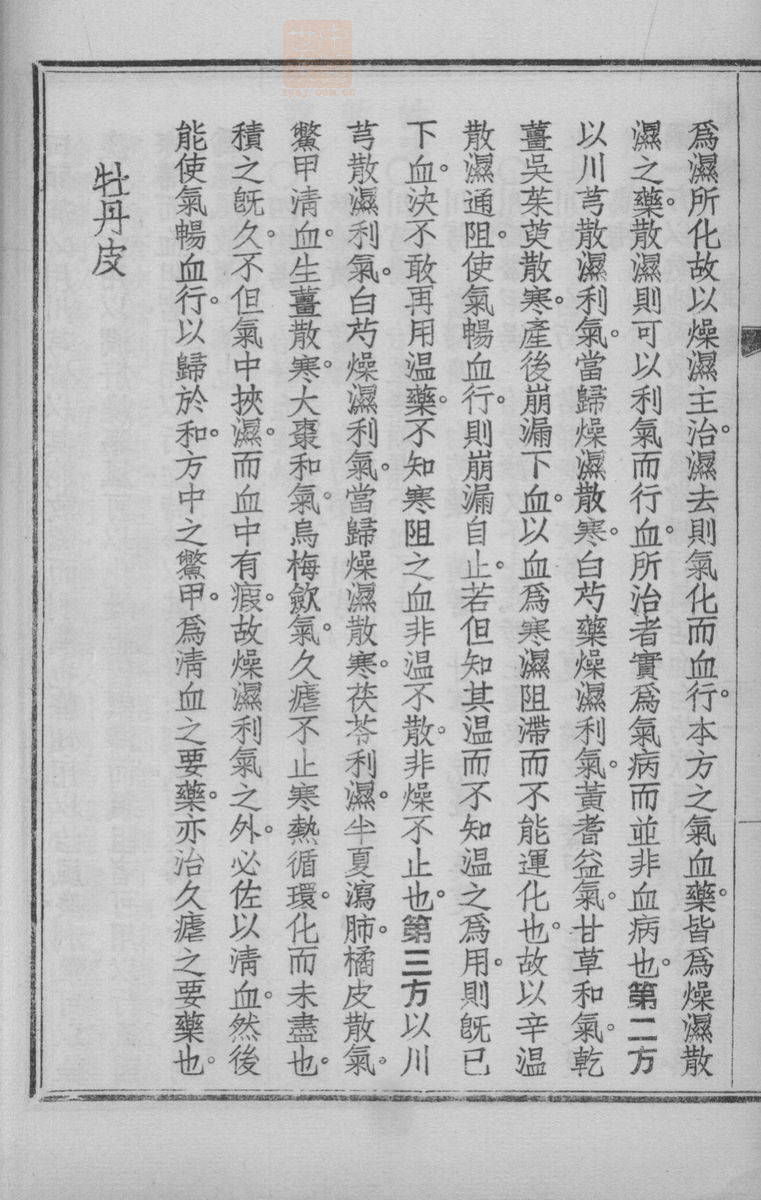 爲濕所化故以燥濕主治。濕去則氣化而血行。本方之氣血藥。皆爲燥濕散
濕之藥。散濕則可以利氣而行血。所治者實爲氣病而並非血病也。第二方
以川芎散濕利氣。當歸燥濕散寒。白芍藥燥濕利氣。黃耆益氣。甘草和氣。乾
薑吳茱萸散寒。產後崩漏下血。以血爲寒濕阻滯而不能運化也。故以辛温
散濕通阻。使氣暢血行。則崩漏自止。若但知其温而不知温之爲用。則旣已
下血。決不敢再用温藥。不知寒阻之血非温不散。非燥不止也。第三方以川
芎散濕利氣。白芍燥濕利氣。當歸燥濕散寒。茯苓利濕。半夏瀉肺。橘皮散氣。
鱉甲清血。生薑散寒。大棗和氣。烏梅歛氣。久瘧不止寒熱循環。化而未盡也。
積之旣久。不但氣中挾濕。而血中有瘕。故燥濕利氣之外。必佐以清血。然後
能使氣暢血行。以歸於和。方中之鱉甲。爲清血之要藥。亦治久瘧之要藥也。
牡丹皮